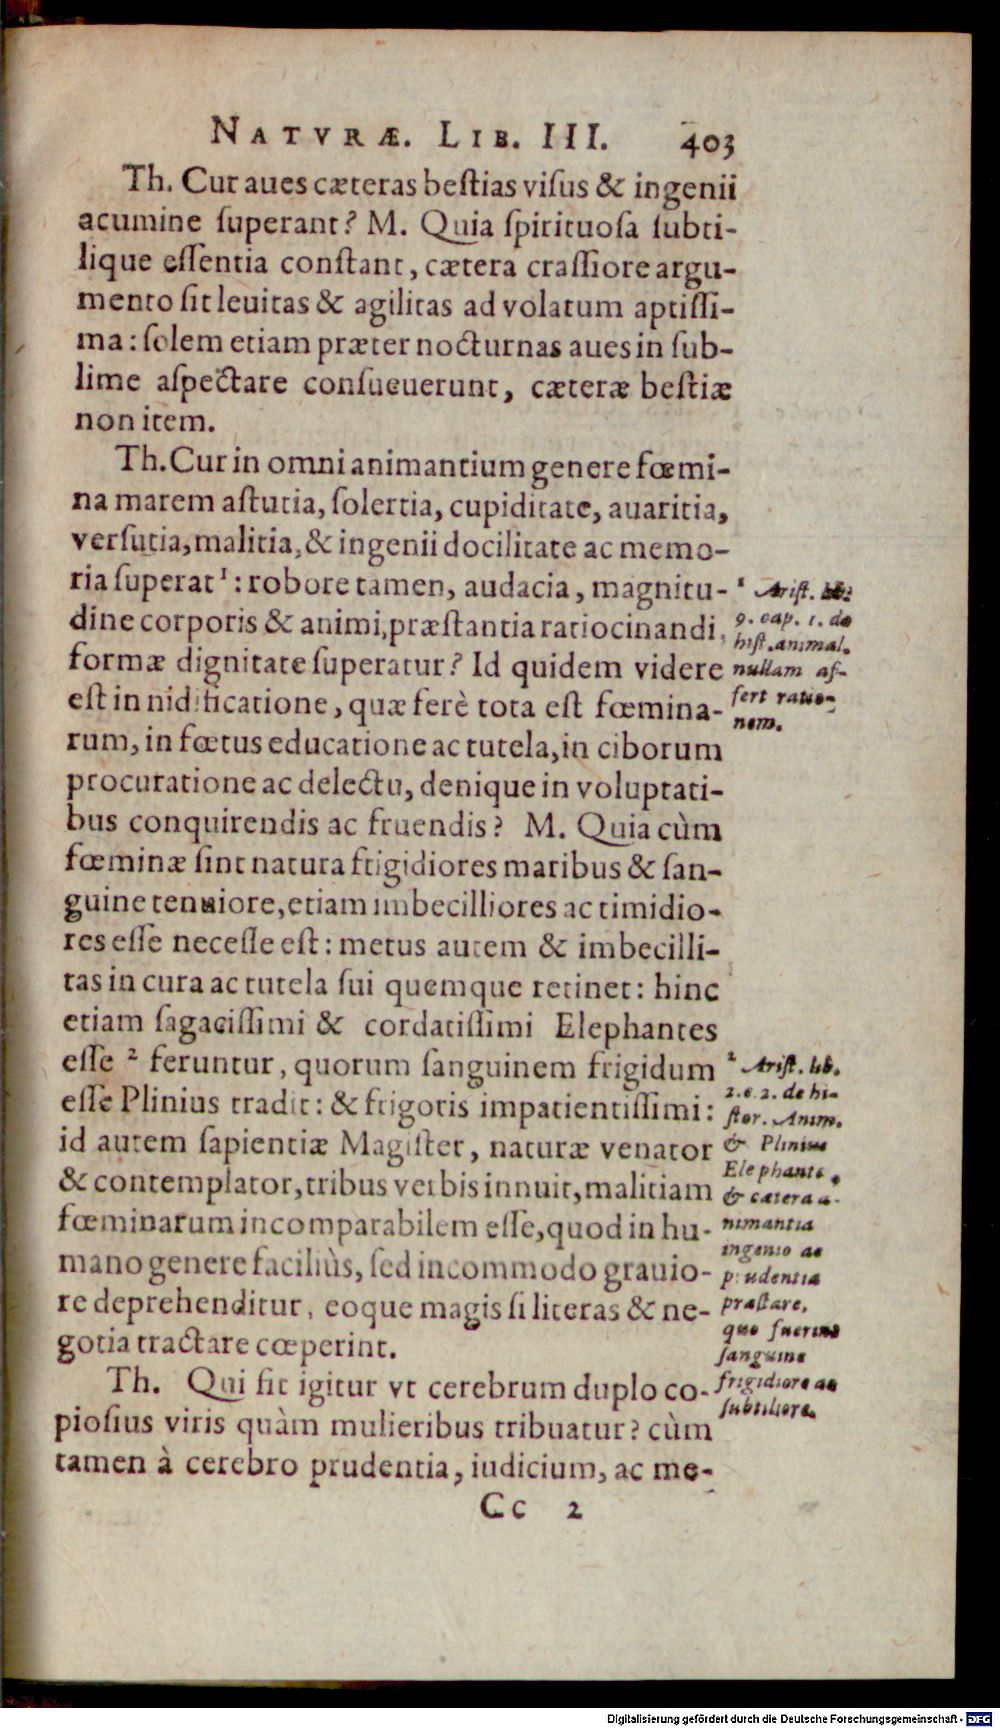 NATVRÆ. LIB. III. 403
Th. Cur aues cæteras bestias visus & ingenii
acumine superant? M. Quia spirituosa subti-
lique essentia constant, cætera crassiore argu-
mento sit leuitas & agilitas ad volatum aptissi-
ma: solem etiam præter nocturnas aues in sub-
lime aspectare consueuerunt, cæteræ bestiæ
non item.
Th. Cur in omni animantium genere fœmi-
na marem astutia, solertia, cupiditate, auaritia,
versutia, malitia, & ingenii docilitate ac memo-
ria superat ¹: robore tamen, audacia, magnitu-
dine corporis & animi, præstantia ratiocinandi,
formæ dignitate superatur? Id quidem videre
est in nidificatione, quæ ferè tota est fœmina-
rum, in fœtus educatione ac tutela, in ciborum
procuratione ac delectu, denique in voluptati-
bus conquirendis ac fruendis? M. Quia cùm
fœminæ sint natura frigidiores maribus & san-
guine tenuiore, etiam imbecilliores ac timidio-
res esse necesse est: metus autem & imbecilli-
tas in cura ac tutela sui quemque retinet: hinc
etiam sagacissimi & cordatissimi Elephantes
esse ² feruntur, quorum sanguinem frigidum
esse Plinius tradit: & frigoris impatientissimi:
id autem sapientiæ Magister, naturæ venator
& contemplator, tribus verbis innuit, malitiam
fœminarum incomparabilem esse, quod in hu-
mano genere faciliùs, sed incommodo grauio-
re deprehenditur, eoque magis si literas & ne-
gotia tractare cœperint.
Th. Qui fit igitur vt cerebrum duplo co-
piosius viris quàm mulieribus tribuatur? cùm
tamen à cerebro prudentia, iudicium, ac me-
Cc 2
¹ Arist. lib.
9. cap. 1. de
hist. animal.
nullam af-
fert ratio-
nem.
² Arist. lib.
2. c. 2. de hi-
stor. Anim.
& Plinius
Elephante,
& cætera a-
nimantia
ingenio ac
prudentia
præstare,
quæ fuerint
sanguine
frigidiore ac
subtiliore.
Digitalisierung gefördert durch die Deutsche Forschungsgemeinschaft - DFG